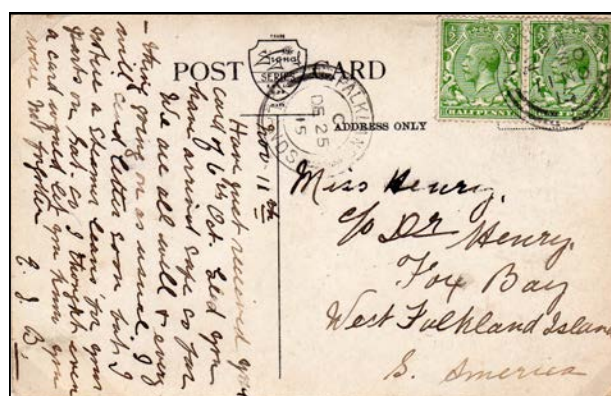 POST CARD
SERIES
ADDRESS ONLY
FALKLAN
C
DE 25
15
HALFPENNY
Nov 11th
Have just received your
card of 6th Oct. Glad you
have arrived safe so far
We are all well & every
- thing going on as usual. I
will send letter soon but I
notice a steamer leaves for your
parts on Sat. so I thought even
a card would let you know you
were not forgotten
E. J. B.
Miss Henry,
c/o Dr Henry,
Fox Bay
West Falkland Island
S. America